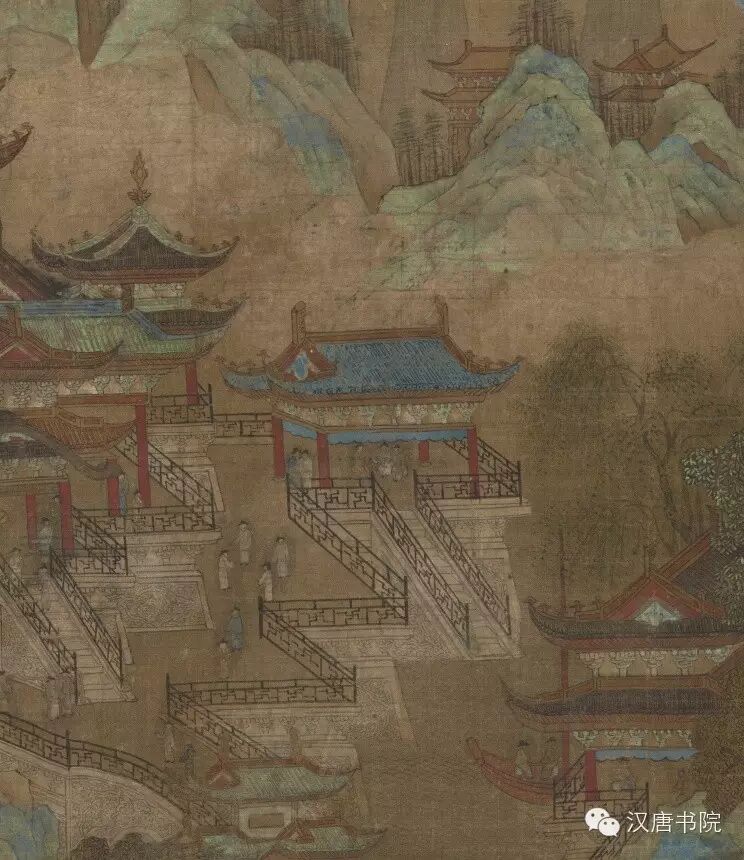 汉唐书院